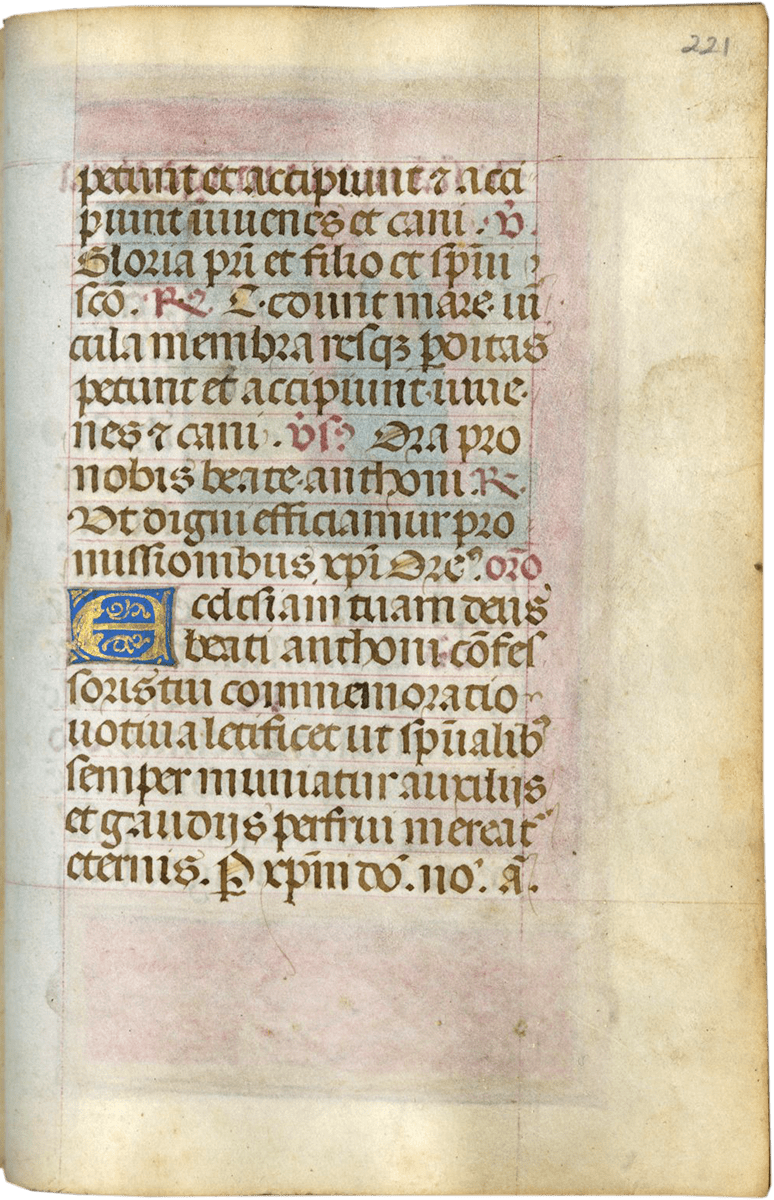 221
petunt et accipiunt ⁊ acci
piunt iuuenes et cani. v̄.
Gloria pr̄i et filio et sp̄iii
sc̄o. R⁊ C. edunt mare uī
cula membra resqꝫ ꝑditas
petunt et accipiunt iuue
nes ⁊ cani. v̄s? Ora pro
nobis beate anthoni R.
Vt digni efficiamur pro
missionibus xp̄i Ore⁹. or̄o
Ecclesiam tuam deus
beati anthonii cōfes
soris tui commemoratio
uotiua letificet ut sp̄ualib⁹
semper muniatur auxilijs
et gaudijs perfrui mereat᷑
eternis. P xp̄m do᷑. no᷑. ā.